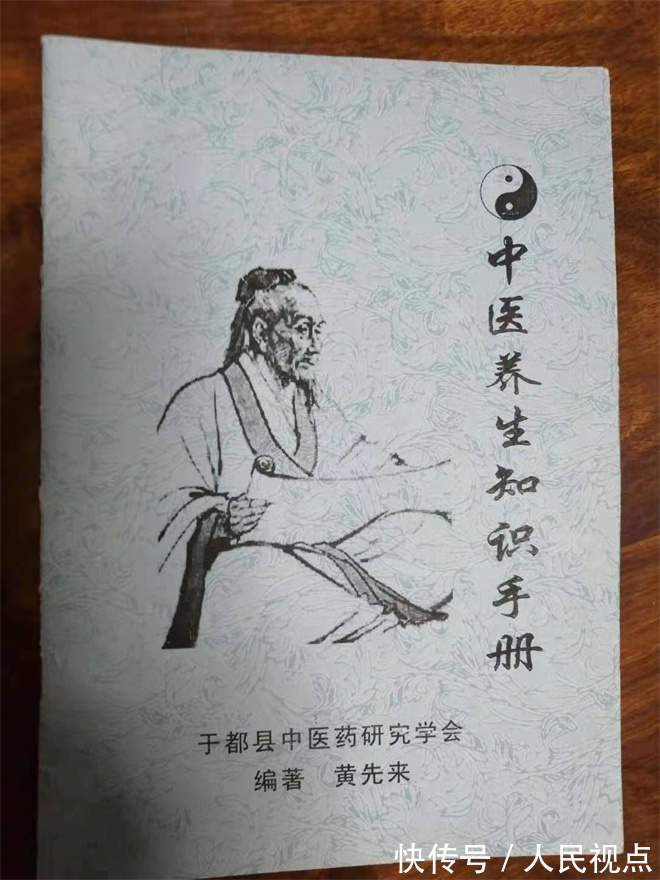 中医养生知识手册
于都县中医药研究学会
编著 黄先来
快传号 / 人民视点